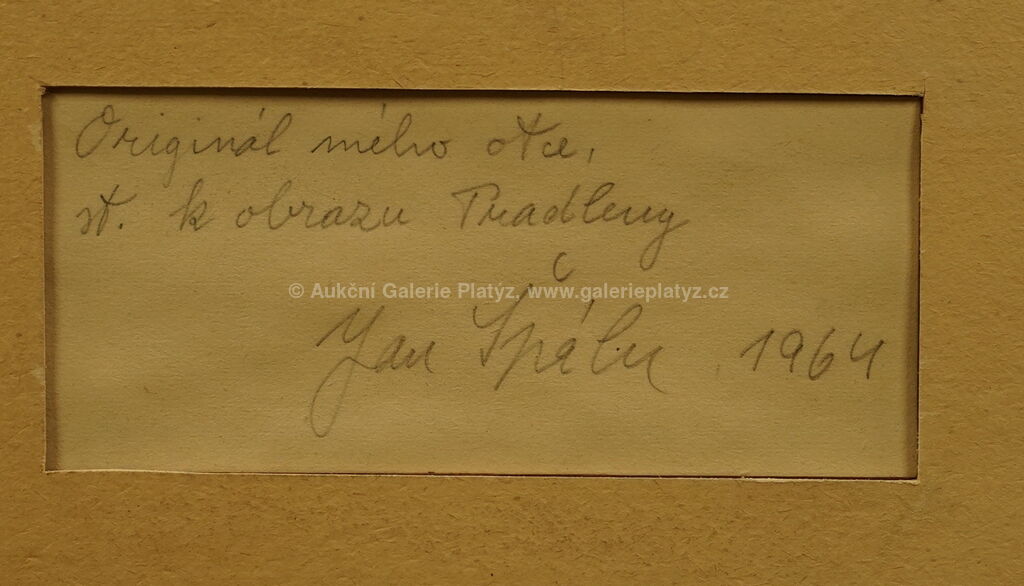 Originál mého otce,
st. k obrazu Pradleny
© Aukční Galerie Platýz, www.galerieplatyz.cz
Jan Špála 1964